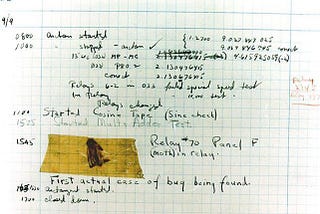 9/9
0800 antan started
1000 " stopped - antan ✓ { 1.2700 9.037 847 025
9.037 846 995 correct
13"uc (032) MP-MC 2.130476415 4.615925059(-2)
(033) PRO 2 2.130476415
correct 2.130676415
Relays 6-2 in 033 failed special speed test
in relay test.
Relays changed
1100 Started Cosine Tape (Sine check)
1525 Started Multi Adder Test.
1545 Relay #70 Panel F
(moth) in relay.
First actual case of bug being found.
antangent started.
1700 closed down.